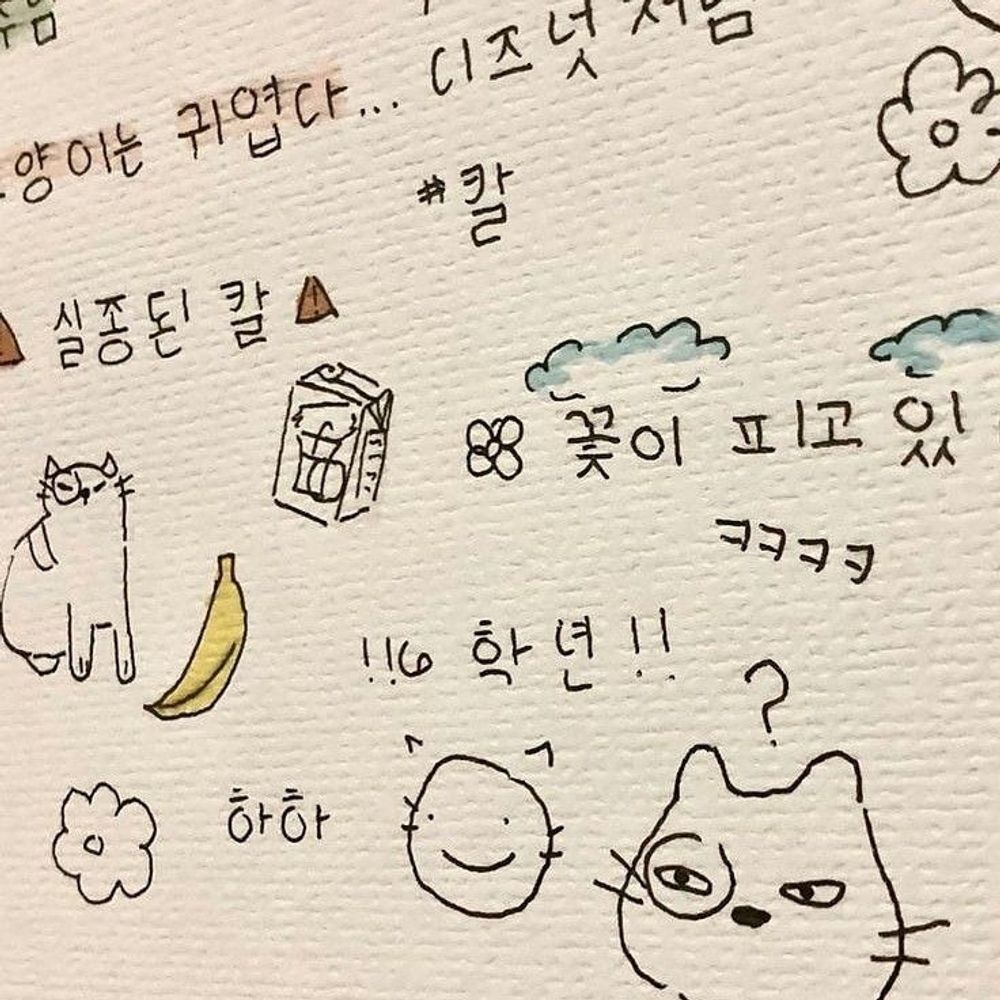 디즈넛처럼
양이는 귀엽다...
#칼
실종된 칼
꽃이 피고 있
ㅋㅋㅋㅋ
!!6학년!!
?
하하